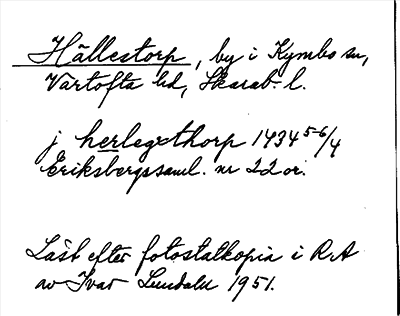 Hällestorp, by i Kymbo sn,
Vartofta hd, Skarab. l.
j herlegxthorp 1434 5-6/4
Eriksbergssaml. nr 22 or.
Läst efter fotostatkopia i RA
av Ivar Lundahl 1951.